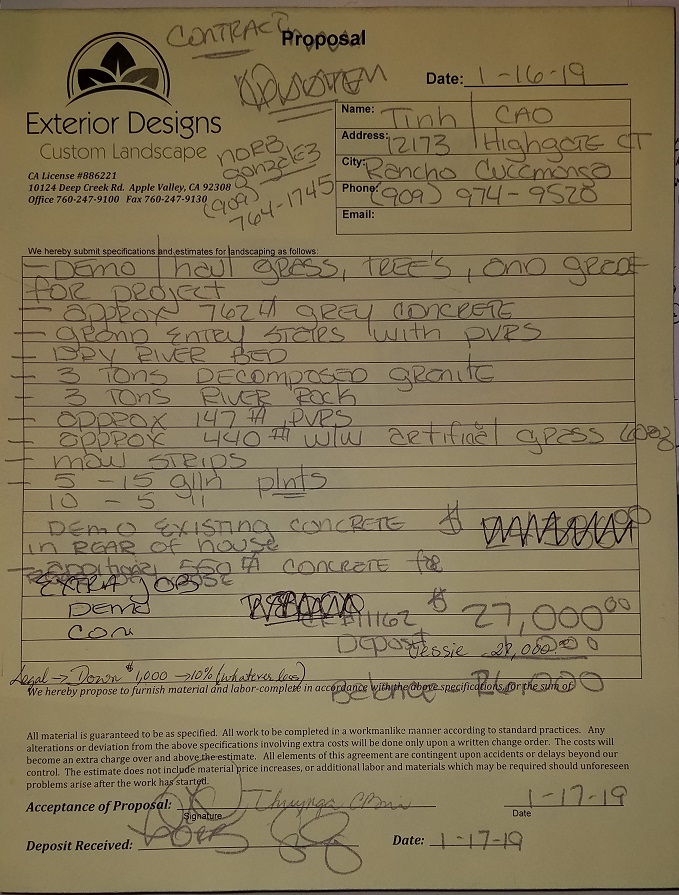 CONTRACT
Proposal
Date: 1-16-19
Exterior Designs
Custom Landscape
CA License #886221
10124 Deep Creek Rd. Apple Valley, CA 92308
Office 760-247-9100 Fax 760-247-9130
NORB
gonzalez
(909)
764-1745
Name: Tinh CAO
Address: 12173 Highgate CT
City: Rancho Cuccmonga
Phone: (909) 974-9528
Email:
We hereby submit specifications and estimates for landscaping as follows:
- DEMO haul grass, TREE'S, and grade
FOR PROJECT
- APPROX 762 # GREY CONCRETE
- grand ENTRY STAIRS with PVRS
- DRY RIVER BED
- 3 TONS DECOMPOSED granite
- 3 TONS RIVER ROCK
- APPROX 147 # PVRS
- APPROX 440 # w/w artifical grass 60oz
- MOW STRIPS
- 5 - 15 glln plnts
10 - 5 "
DEMO EXISTING CONCRETE $
IN REAR OF house
- additional 560 # CONCRETE for
EXTRA
DEMO $ 27,000 00
Con 11162
Deposit Jessie
Legal → Down $1,000 → 10% (whatever less)
Balance - 26,000
We hereby propose to furnish material and labor-complete in accordance with the above specifications, for the sum of
All material is guaranteed to be as specified. All work to be completed in a workmanlike manner according to standard practices. Any
alterations or deviation from the above specifications involving extra costs will be done only upon a written change order. The costs will
become an extra charge over and above the estimate. All elements of this agreement are contingent upon accidents or delays beyond our
control. The estimate does not include material price increases, or additional labor and materials which may be required should unforeseen
problems arise after the work has started.
Acceptance of Proposal: 1-17-19
Signature Date
Deposit Received: Date: 1-17-19